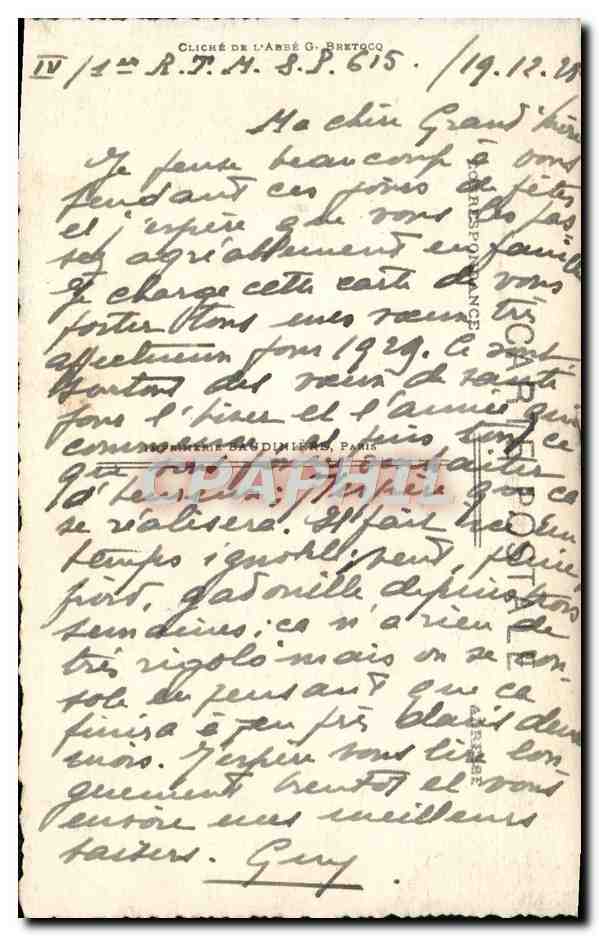 CLICHÉ DE L'ABBÉ G. BRETOCQ
IV / 1er R.T.M. S.P. 615. / 19.12.28
Ma chère Grand'Mère
Je pense beaucoup à vous
pendant ces jours de fêtes
et j'espère que vous les pas
sez agréablement en famille
Je charge cette carte de vous
porter tous mes vœux très
affectueux pour 1929. Ce sont
surtout des vœux de santé
pour l'hiver et l'année qui
commence et puis tout ce
que vous pouvez souhaiter
d'heureux; j'espère que ça
se réalisera. Il fait ici un
temps ignoble, vent, pluie,
froid, gadouille depuis trois
semaines; ça n'a rien de
très rigolo mais on se con
sole en pensant que ça
finira à peu près dans deux
mois. J'espère vous lire lon
guement bientôt et vous
envoie mes meilleurs
baisers. Guy.
IMPRIMERIE BAUDINIÈRE, PARIS
CARTE POSTALE
CORRESPONDANCE
ADRESSE
CPAPHIL